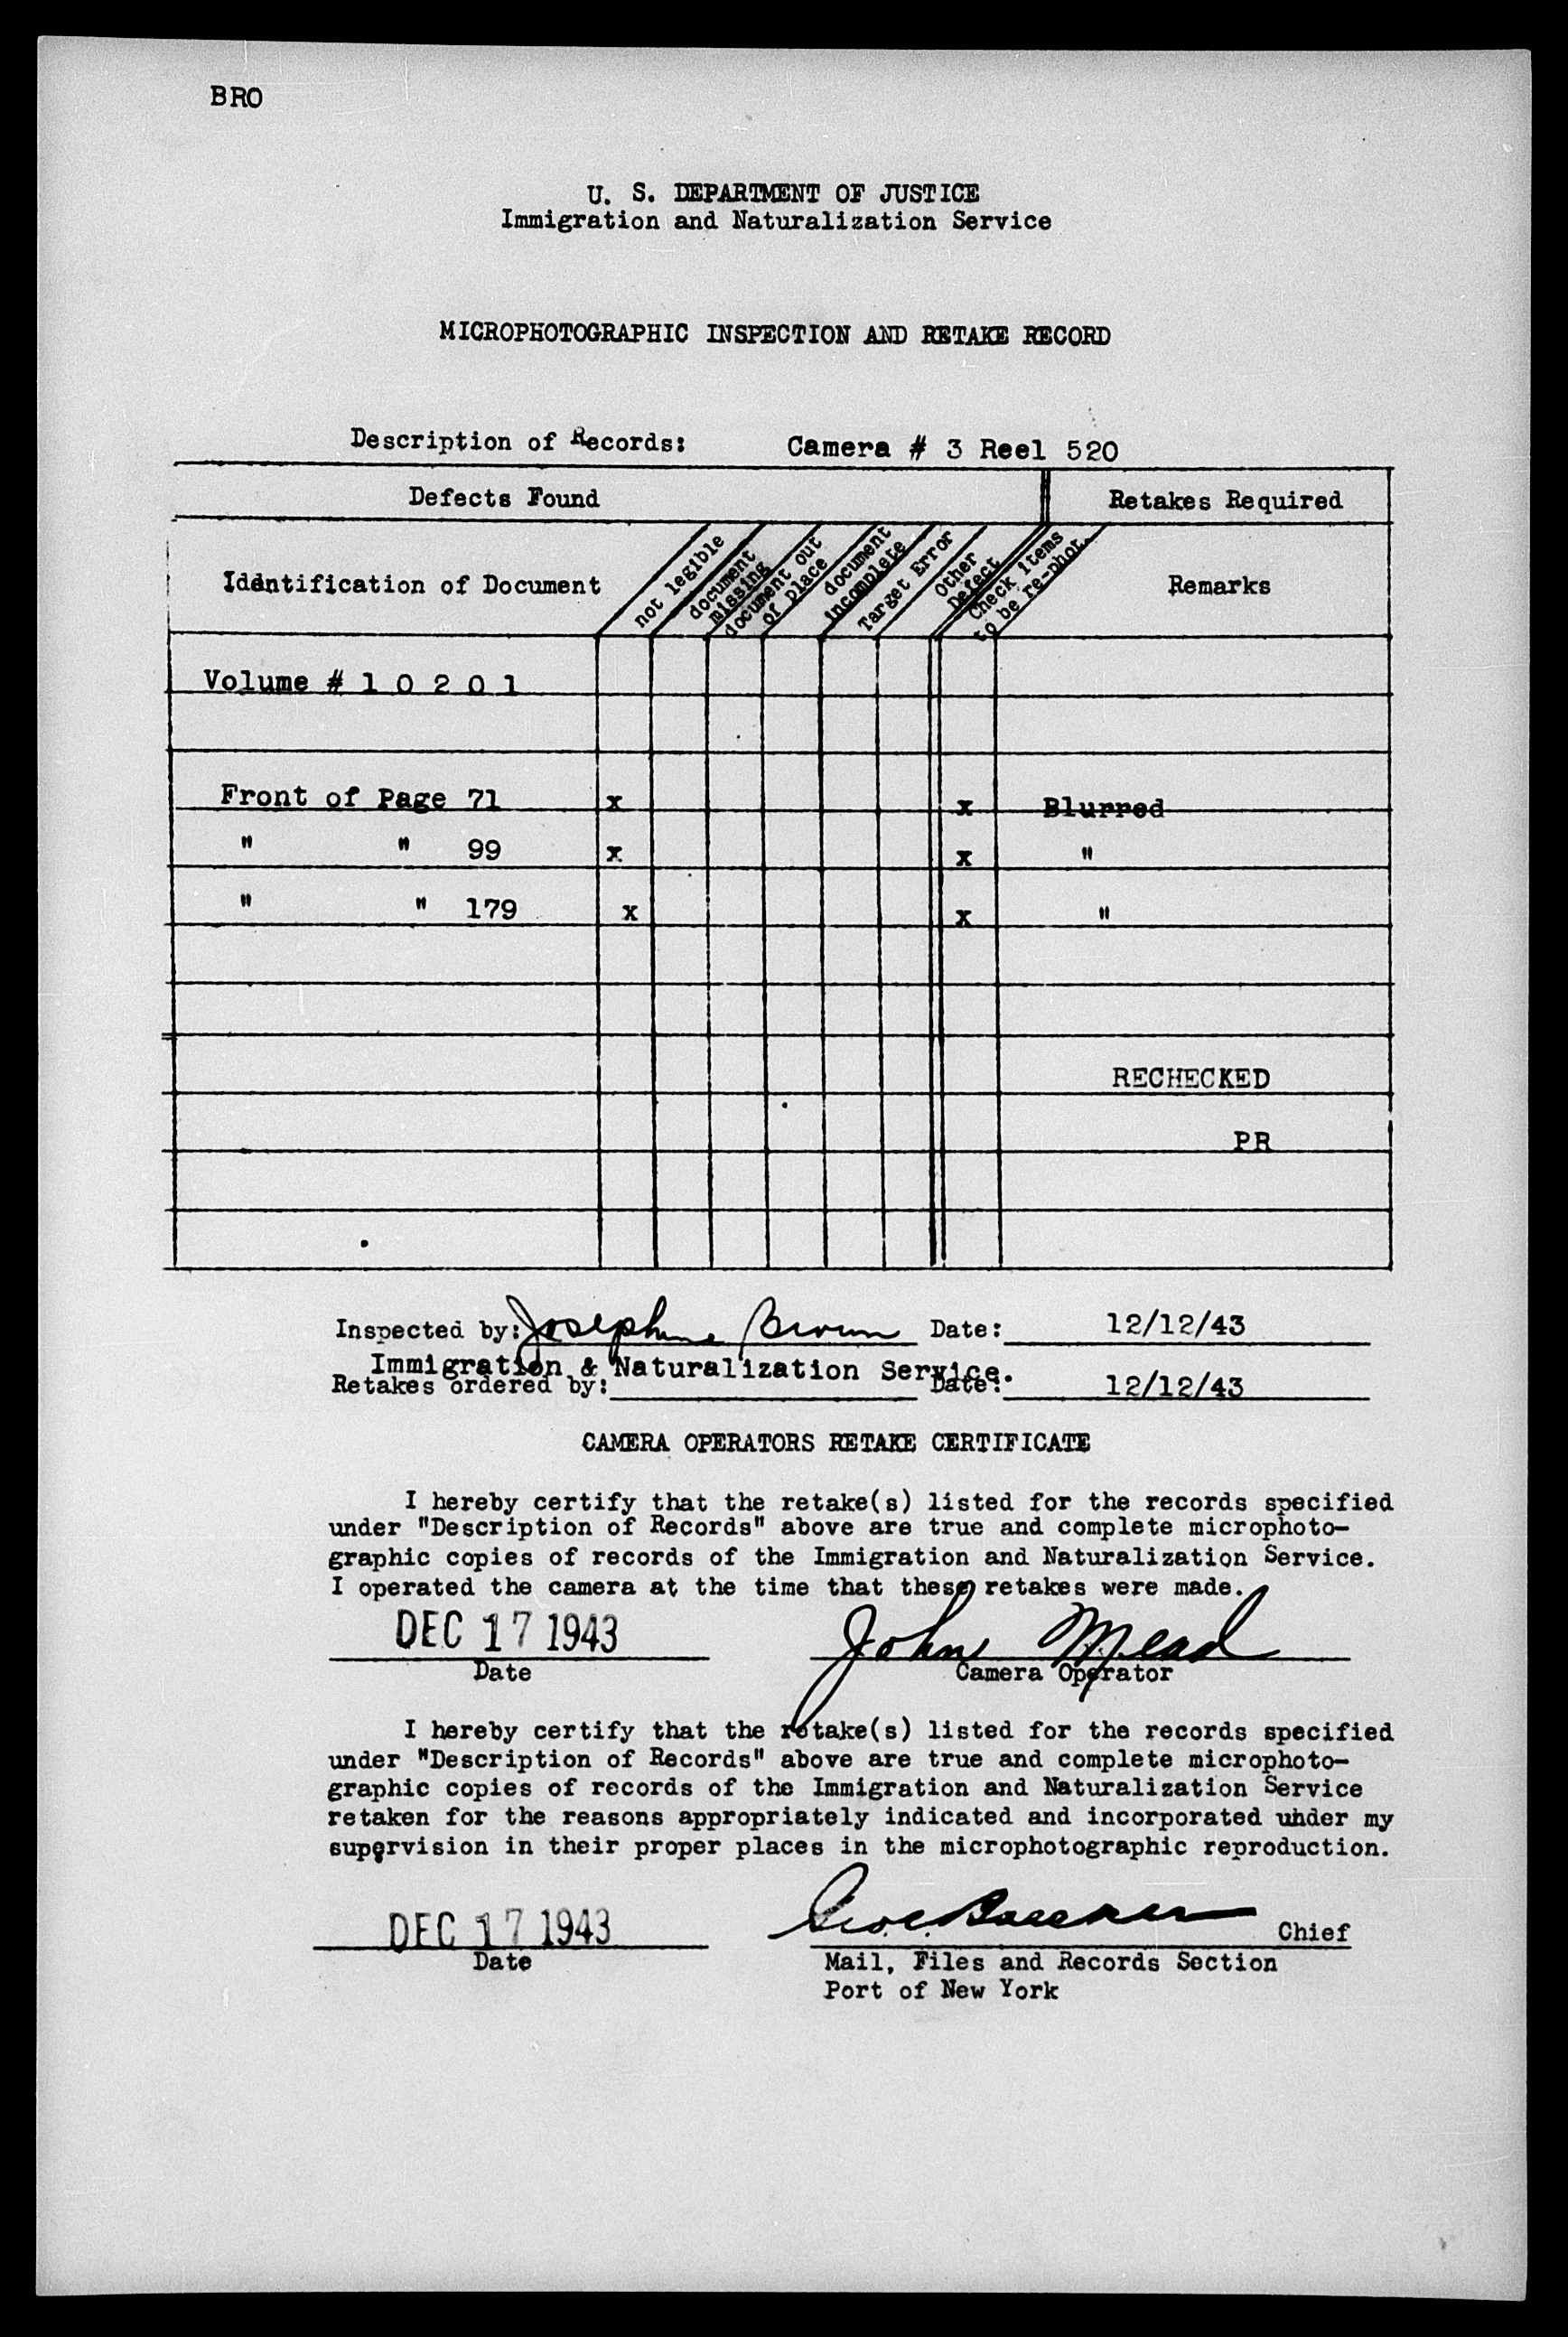 BRO
U. S. DEPARTMENT OF JUSTICE
Immigration and Naturalization Service
MICROPHOTOGRAPHIC INSPECTION AND RETAKE RECORD
Description of Records: Camera # 3 Reel 520
Defects Found Retakes Required
Identification of Document not legible document missing document out of place document incomplete Target Error Other Defect Check items to be re-phot. Remarks
Volume # 1 0 2 0 1
Front of Page 71 x x Blurred
" " 99 x x "
" " 179 x x "
RECHECKED
PR
Inspected by: Josephine Brown Date: 12/12/43
Immigration & Naturalization Service.
Retakes ordered by: Date: 12/12/43
CAMERA OPERATORS RETAKE CERTIFICATE
I hereby certify that the retake(s) listed for the records specified
under "Description of Records" above are true and complete microphoto-
graphic copies of records of the Immigration and Naturalization Service.
I operated the camera at the time that these retakes were made.
DEC 17 1943 John Mead
Date Camera Operator
I hereby certify that the retake(s) listed for the records specified
under "Description of Records" above are true and complete microphoto-
graphic copies of records of the Immigration and Naturalization Service
retaken for the reasons appropriately indicated and incorporated under my
supervision in their proper places in the microphotographic reproduction.
DEC 17 1943 Chief
Date Mail, Files and Records Section
Port of New York